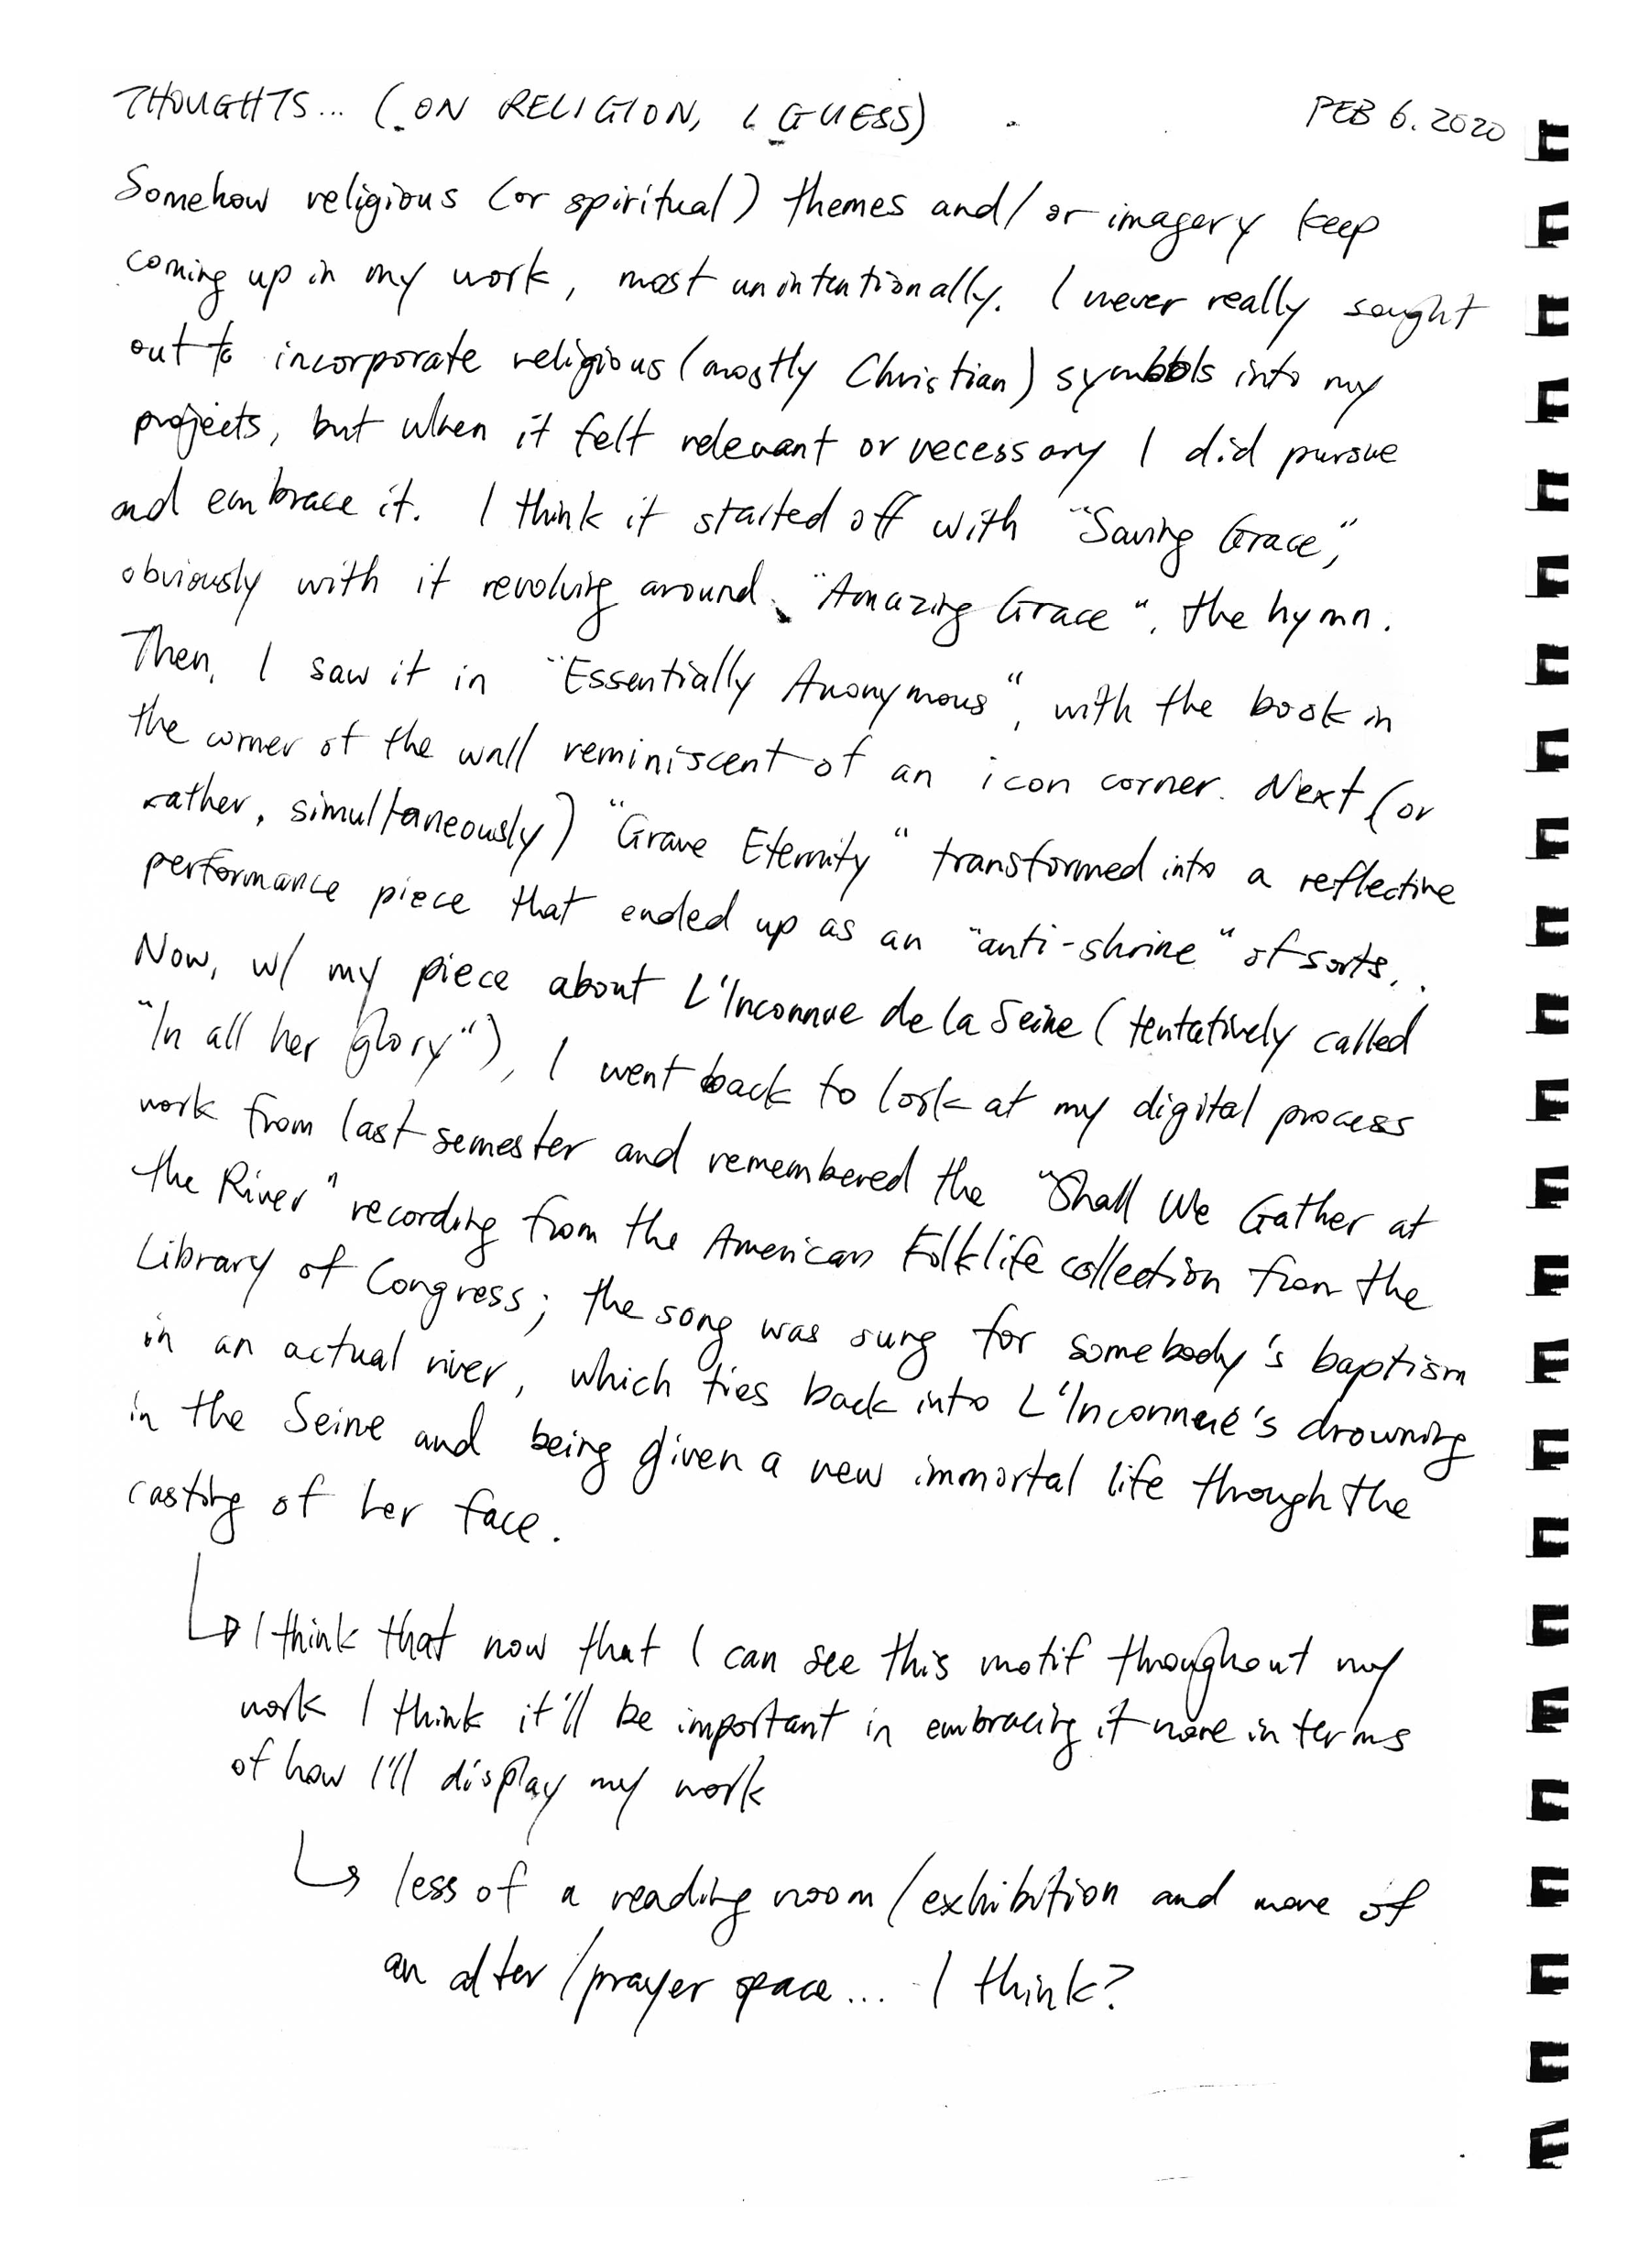 THOUGHTS... (ON RELIGION, I GUESS)
FEB 6. 2020
Somehow religious (or spiritual) themes and/or imagery keep
coming up in my work, most unintentionally. I never really sought
out to incorporate religious (mostly Christian) symbols into my
projects, but when it felt relevant or necessary I did pursue
and embrace it. I think it started off with "Saving Grace,"
obviously with it revolving around "Amazing Grace", the hymn.
Then, I saw it in "Essentially Anonymous", with the book in
the corner of the wall reminiscent of an icon corner. Next (or
rather, simultaneously) "Grave Eternity" transformed into a reflective
performance piece that ended up as an "anti-shrine" of sorts..
Now, w/ my piece about L'Inconnue de la Seine (tentatively called
"In all her glory"), I went back to look at my digital process
work from last semester and remembered the "Shall We Gather at
the River" recording from the American Folklife collection from the
Library of Congress; the song was sung for somebody's baptism
in an actual river, which ties back into L'Inconnue's drowning
in the Seine and being given a new immortal life through the
casting of her face.
↳ I think that now that I can see this motif throughout my
work I think it'll be important in embracing it more in terms
of how I'll display my work
↳ less of a reading room/exhibition and more of
an alter/prayer space... I think?